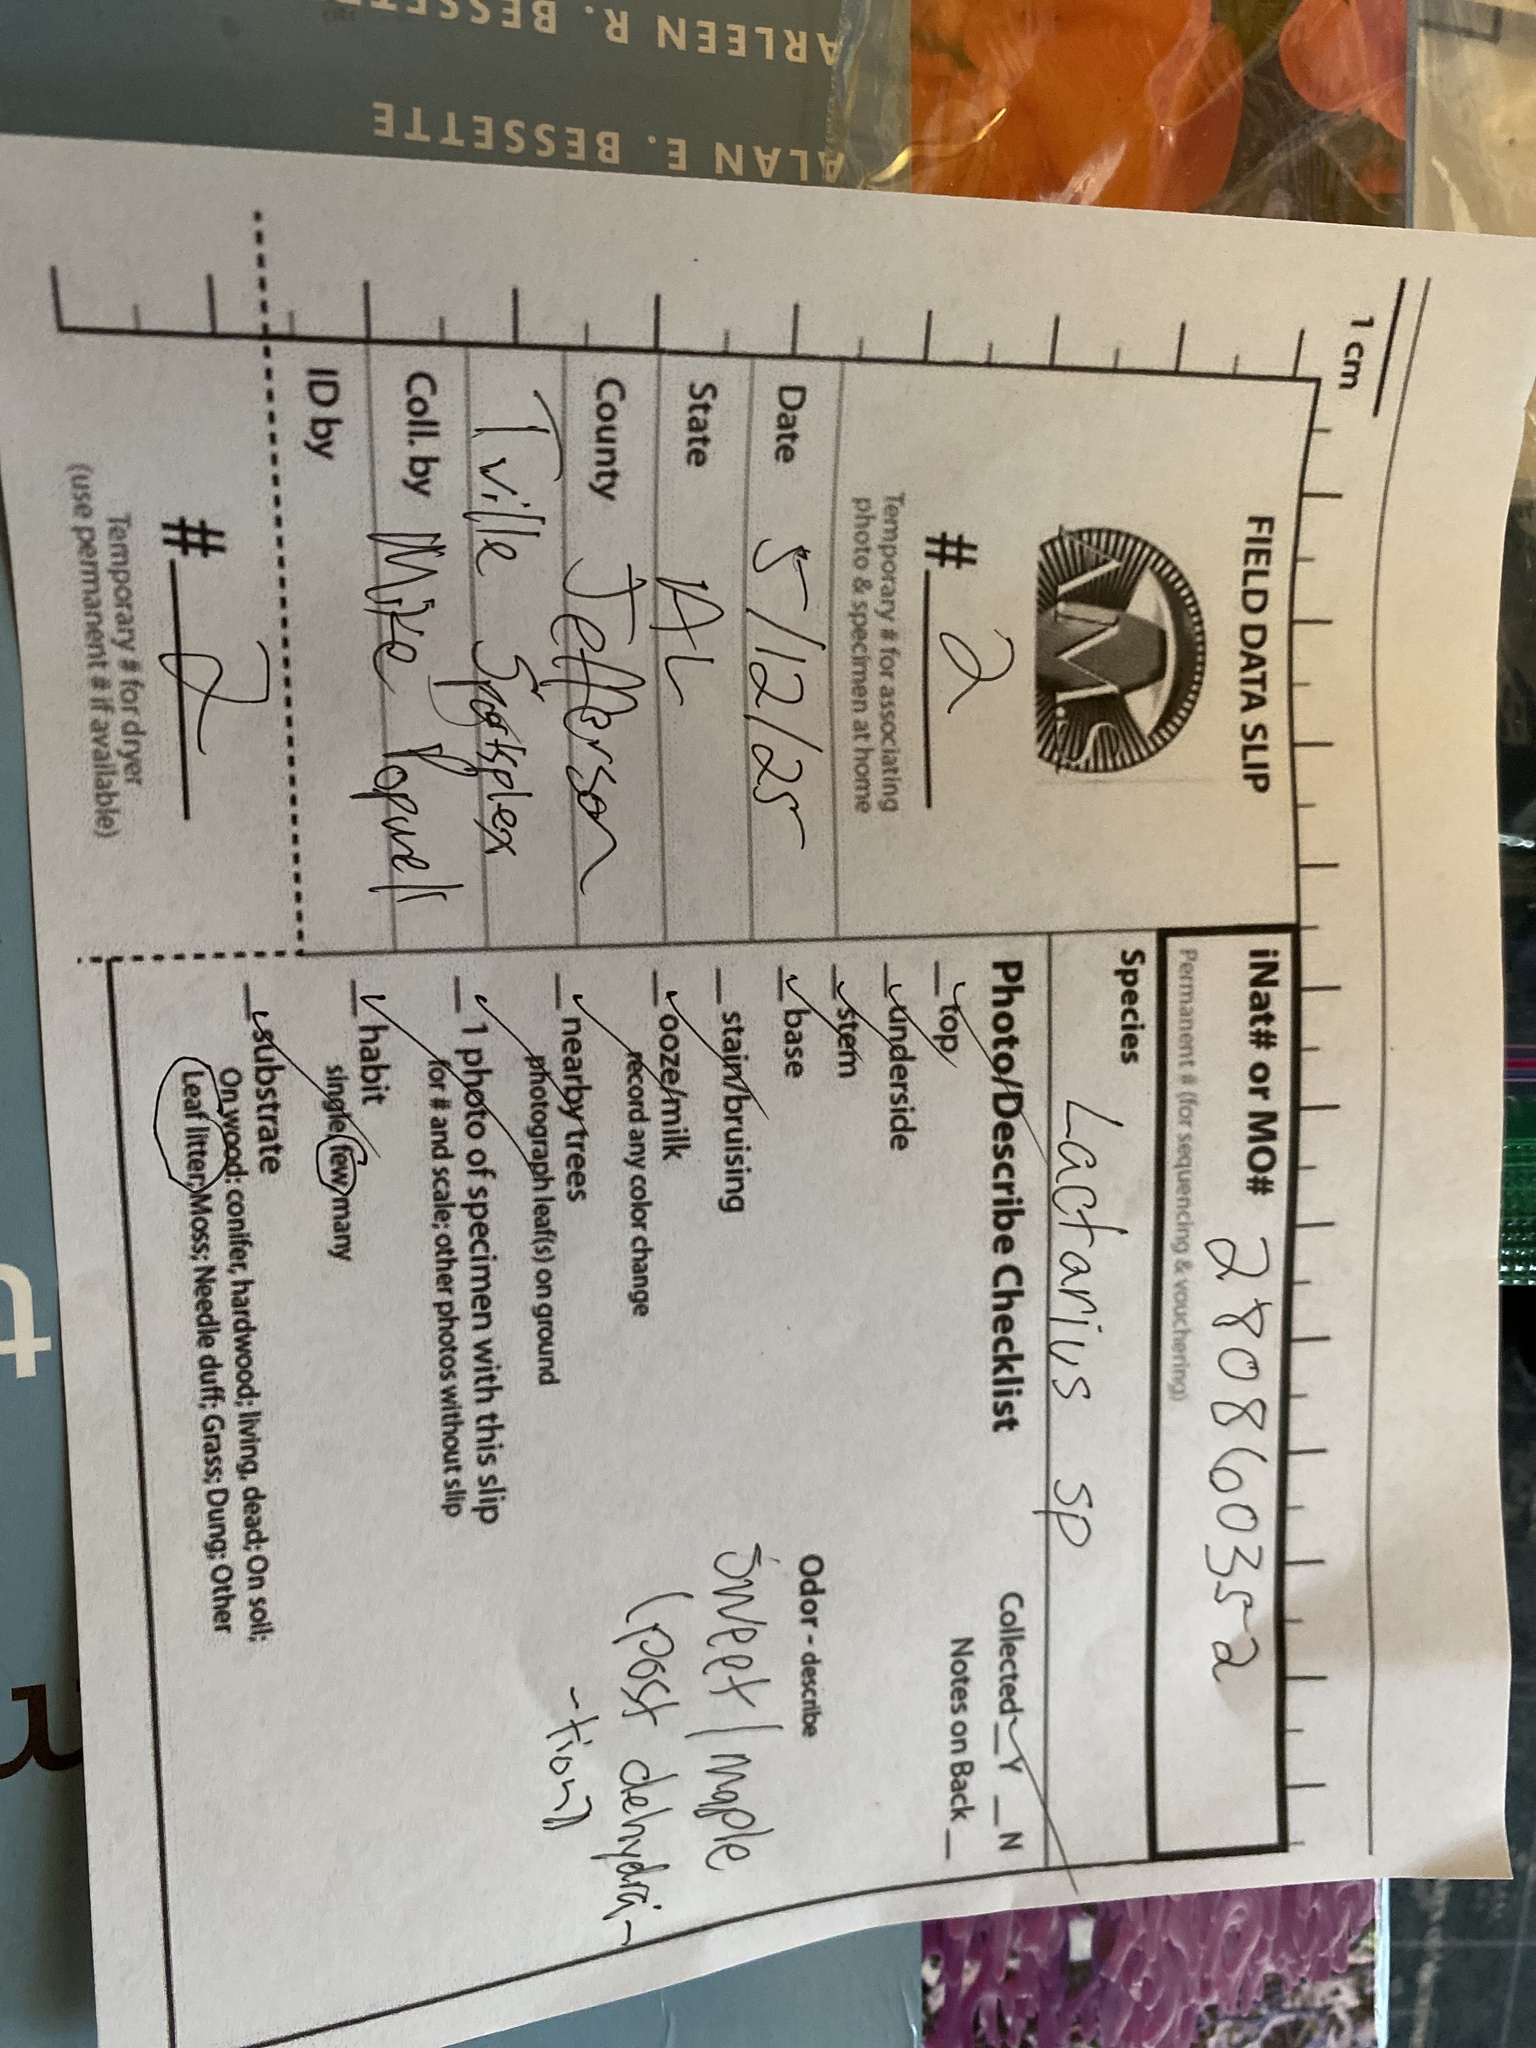 ARLEEN R. BESSETTE
ALAN E. BESSETTE
1 cm
FIELD DATA SLIP
AIMS
# 2
Temporary # for associating
photo & specimen at home
Date 5/12/25
State AL
County Jefferson
Tville Sportsplex
Coll. by Mike Hopwell
ID by
# 2
Temporary # for dryer
(use permanent # if available)
iNat# or MO# 280860352
Permanent # (for sequencing & vouchering)
Species Lactarius sp
Photo/Describe Checklist
Collected _Y _N
Notes on Back _
_ top
_ underside
_ stem
_ base
_ stain/bruising
_ ooze/milk
record any color change
_ nearby trees
photograph leaf(s) on ground
_ 1 photo of specimen with this slip
for # and scale; other photos without slip
_ habit
single, few, many
_ substrate
On wood: conifer, hardwood; living, dead; On soil;
Leaf litter; Moss; Needle duff; Grass; Dung; Other
Odor - describe
Sweet/maple
(post dehydra-
-tion)